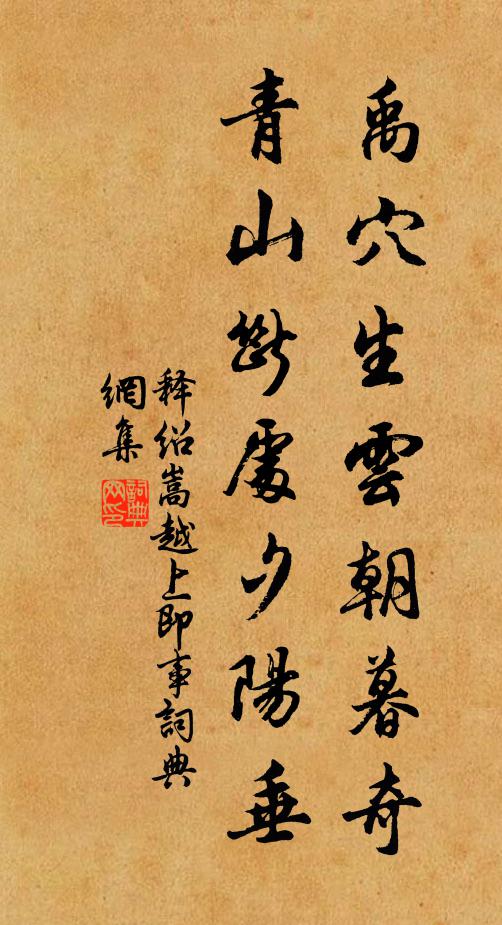 禹穴生雲朝暮奇
青山斷處夕陽垂
释紹嵩越上即事詞典
網集
詞典網印